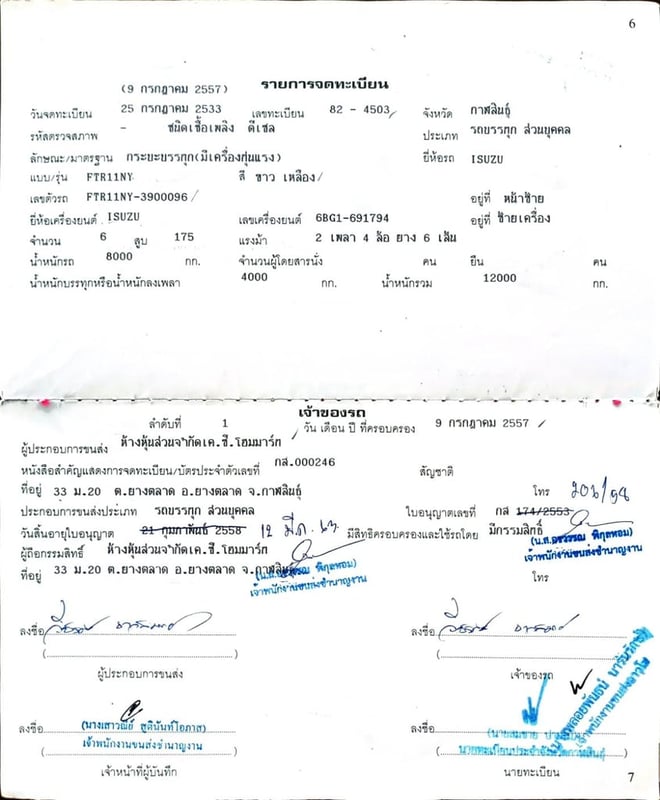 6
(9 กรกฎาคม 2557) รายการจดทะเบียน
วันจดทะเบียน 25 กรกฎาคม 2533 เลขทะเบียน 82 - 4503/ จังหวัด กาฬสินธุ์
รหัสตรวจสภาพ - ชนิดเชื้อเพลิง ดีเซล ประเภท รถบรรทุก ส่วนบุคคล
ลักษณะ/มาตรฐาน กระบะบรรทุก(มีเครื่องทุ่นแรง) ยี่ห้อรถ ISUZU
แบบ/รุ่น FTR11NY สี ขาว เหลือง/
เลขตัวรถ FTR11NY-3900096/ อยู่ที่ หน้าซ้าย
ยี่ห้อเครื่องยนต์ ISUZU เลขเครื่องยนต์ 6BG1-691794 อยู่ที่ ซ้ายเครื่อง
จำนวน 6 สูบ 175 แรงม้า 2 เพลา 4 ล้อ ยาง 6 เส้น
น้ำหนักรถ 8000 กก. จำนวนผู้โดยสารนั่ง คน ยืน คน
น้ำหนักบรรทุกหรือน้ำหนักลงเพลา 4000 กก. น้ำหนักรวม 12000 กก.
เจ้าของรถ
ลำดับที่ 1 / วัน เดือน ปี ที่ครอบครอง 9 กรกฎาคม 2557 /
ผู้ประกอบการขนส่ง ห้างหุ้นส่วนจำกัดเค.ซี.โฮมมาร์ก
หนังสือสำคัญแสดงการจดทะเบียน/บัตรประจำตัวเลขที่ กส.000246 สัญชาติ
ที่อยู่ 33 ม.20 ต.ยางตลาด อ.ยางตลาด จ.กาฬสินธุ์ โทร
ประกอบการขนส่งประเภท รถบรรทุก ส่วนบุคคล ใบอนุญาตเลขที่ กส 174/2553
วันสิ้นอายุใบอนุญาต 21 กุมภาพันธ์ 2558 12 มี.ค. 63 มีสิทธิครอบครองและใช้รถโดย มีกรรมสิทธิ์
ผู้ถือกรรมสิทธิ์ ห้างหุ้นส่วนจำกัดเค.ซี.โฮมมาร์ก
ที่อยู่ 33 ม.20 ต.ยางตลาด อ.ยางตลาด จ.กาฬสินธุ์ โทร
เจ้าพนักงานขนส่งชำนาญงาน
เจ้าพนักงานขนส่งชำนาญงาน
ลงชื่อ ลงชื่อ
ผู้ประกอบการขนส่ง เจ้าของรถ
ลงชื่อ ลงชื่อ
(นางเสาวณีย์ สูตินันท์โอภาส)
เจ้าพนักงานขนส่งชำนาญงาน นายทะเบียนประจำจังหวัดกาฬสินธุ์
เจ้าหน้าที่ผู้บันทึก นายทะเบียน
7